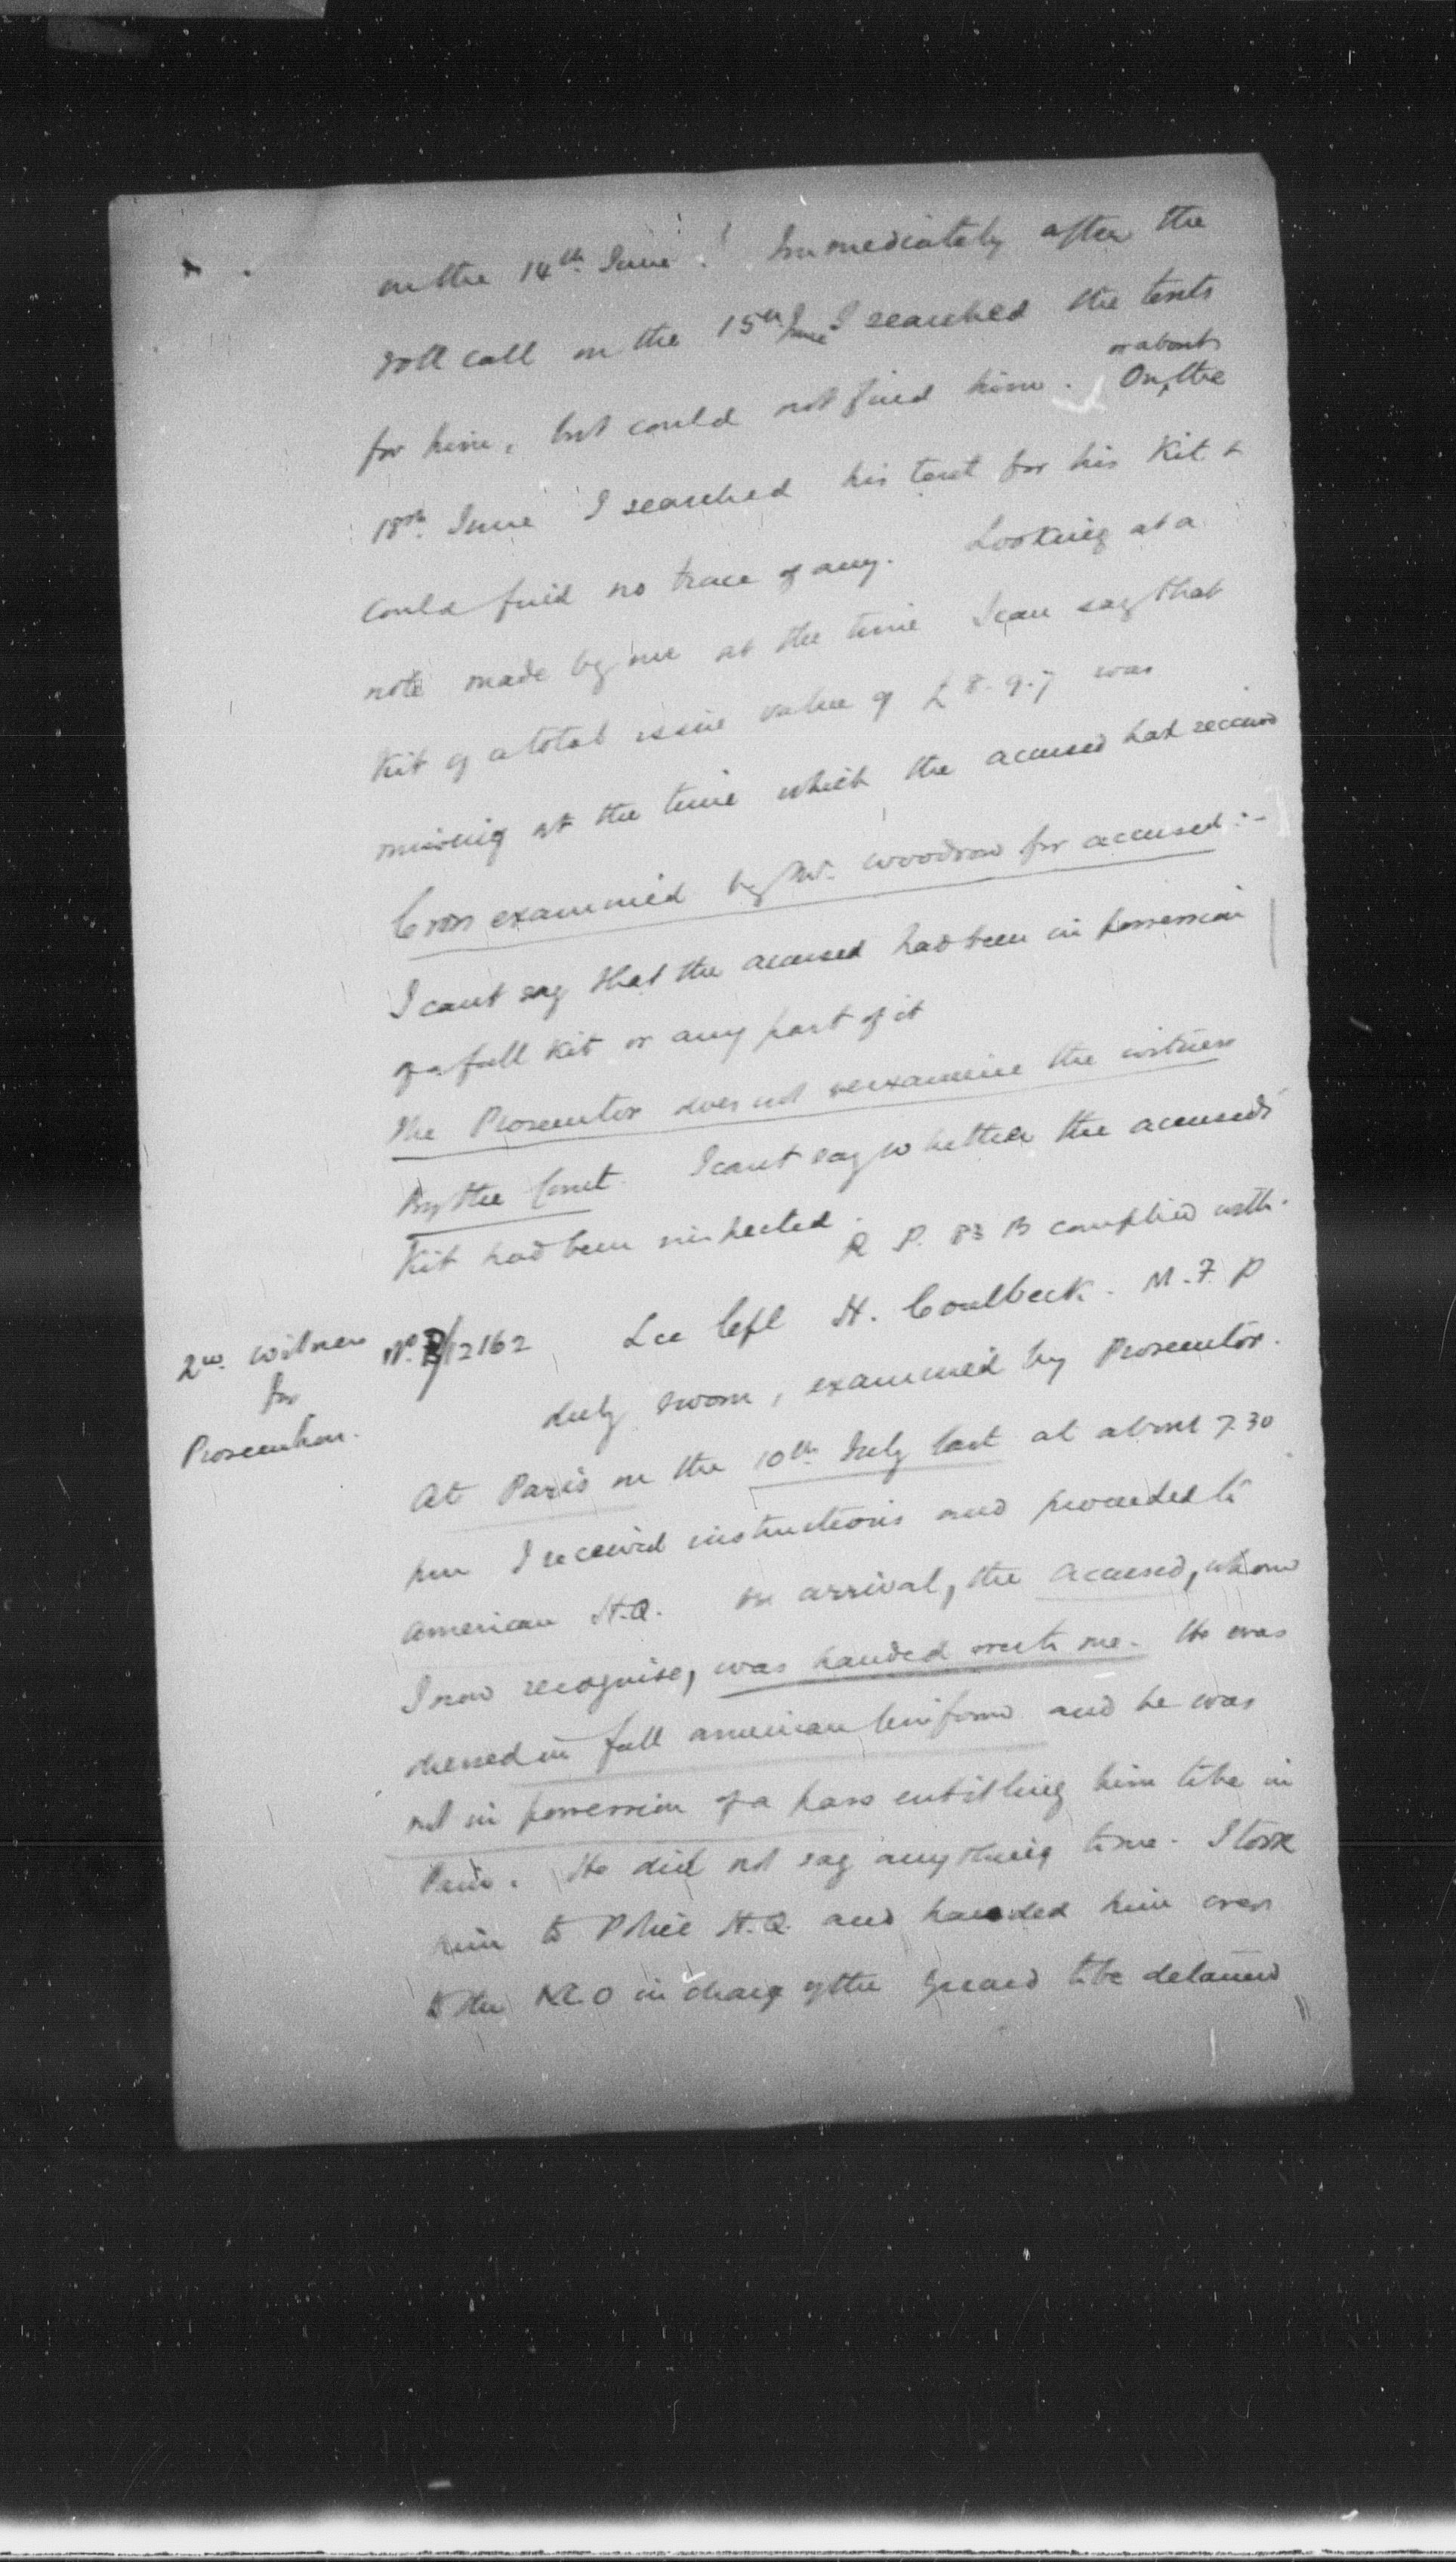 on the 14th June. Immediately after the
roll call on the 15th June I searched the tents
for him, but could not find him. On or about the
18th June I searched his tent for his Kit &
could find no trace of any. Looking at a
note made by me at the time I can say that
Kit of a total issue value of £8.9.7 was
missing at the time which the accused had received
Cross examined by Mr. Woodrow for accused:-
I cant say that the accused had been in possession
of a full Kit or any part of it
The Prosecutor does not reexamine the witness
By the Court. I cant say whether the accused's
Kit had been inspected.
R P. 83 B complied with.
2nd witness for Prosecution.
No. P/12162 Lce Cpl H. Coulbeck. M.F.P
duly sworn, examined by Prosecutor.
At Paris on the 10th July last at about 7.30
pm I received instructions and proceeded to
American H.Q. On arrival, the accused, whom
I now recognise, was handed over to me. He was
dressed in full american uniform and he was
not in possession of a pass entitling him to be in
Paris. He did not say anything to me. I took
him to Police H.Q. and handed him over
to the NCO in charge of the Guard to be detained